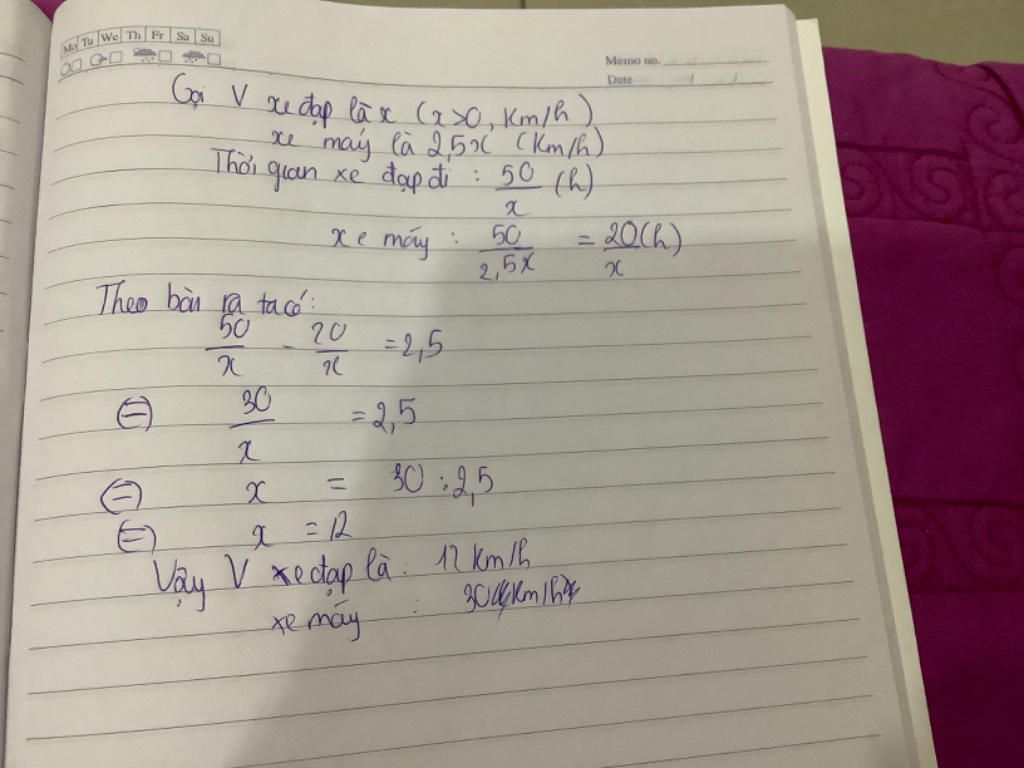 Mo Tu We Th Fr Sa Su
Memo no.
Date / /
Gọi V xe đạp là x (x>0, Km/h)
xe máy là 2,5x (Km/h)
Thời gian xe đạp đi : 50/x (h)
xe máy : 50/2,5x = 20/x (h)
Theo bài ra ta có:
50/x - 20/x = 2,5
⇔ 30/x = 2,5
⇔ x = 30 : 2,5
⇔ x = 12
Vậy V xe đạp là : 12 Km/h
xe máy : 30 Km/h